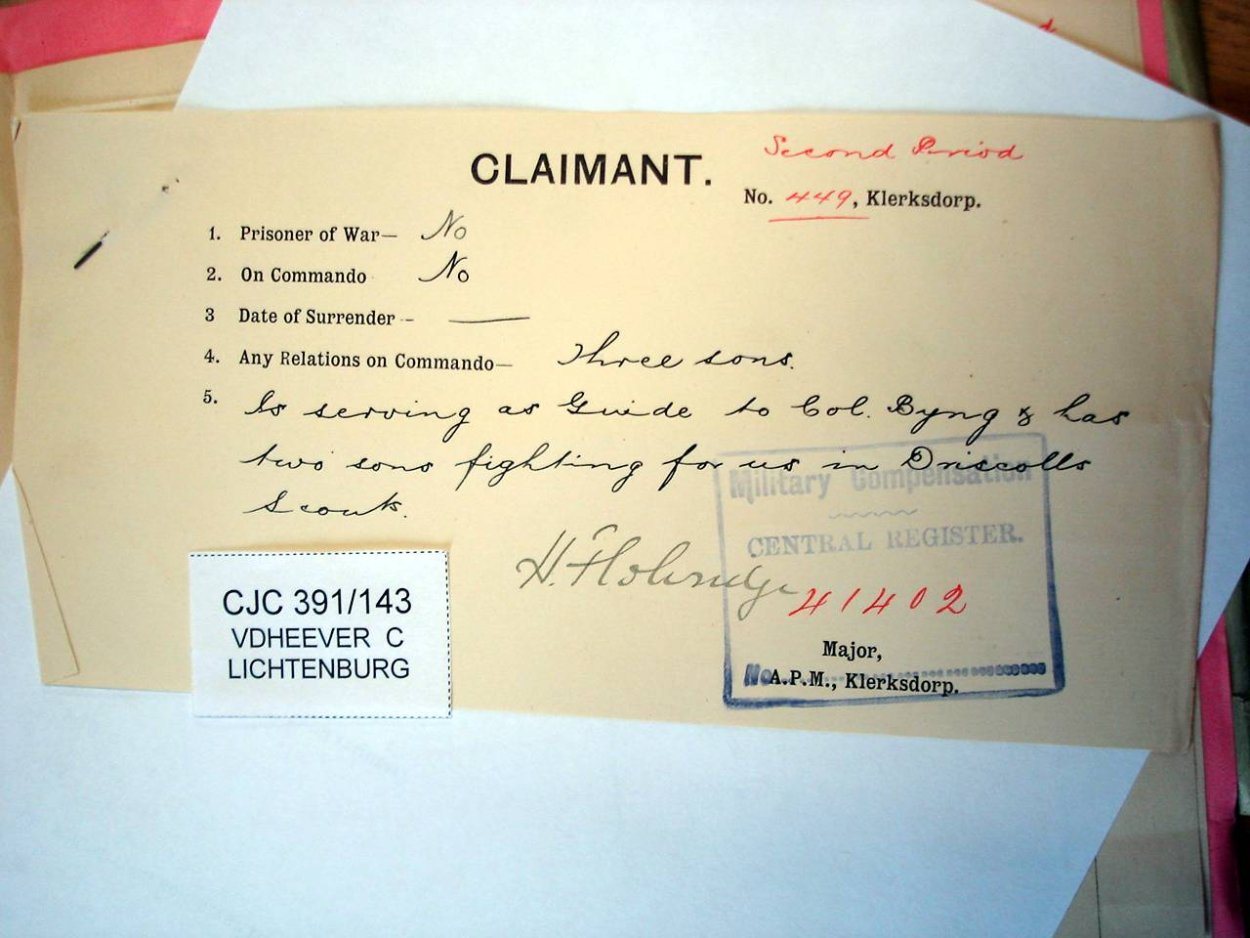 Second Period
CLAIMANT.
No. 449, Klerksdorp.
1. Prisoner of War— No
2. On Commando No
3 Date of Surrender -- ——
4. Any Relations on Commando— Three sons.
5. Is serving as Guide to Col. Byng & has
two sons fighting for us in Driscolls
Scouts.
Military Compensation
CENTRAL REGISTER.
H.
41402
Major,
No.
A.P.M., Klerksdorp.
CJC 391/143
VDHEEVER C
LICHTENBURG